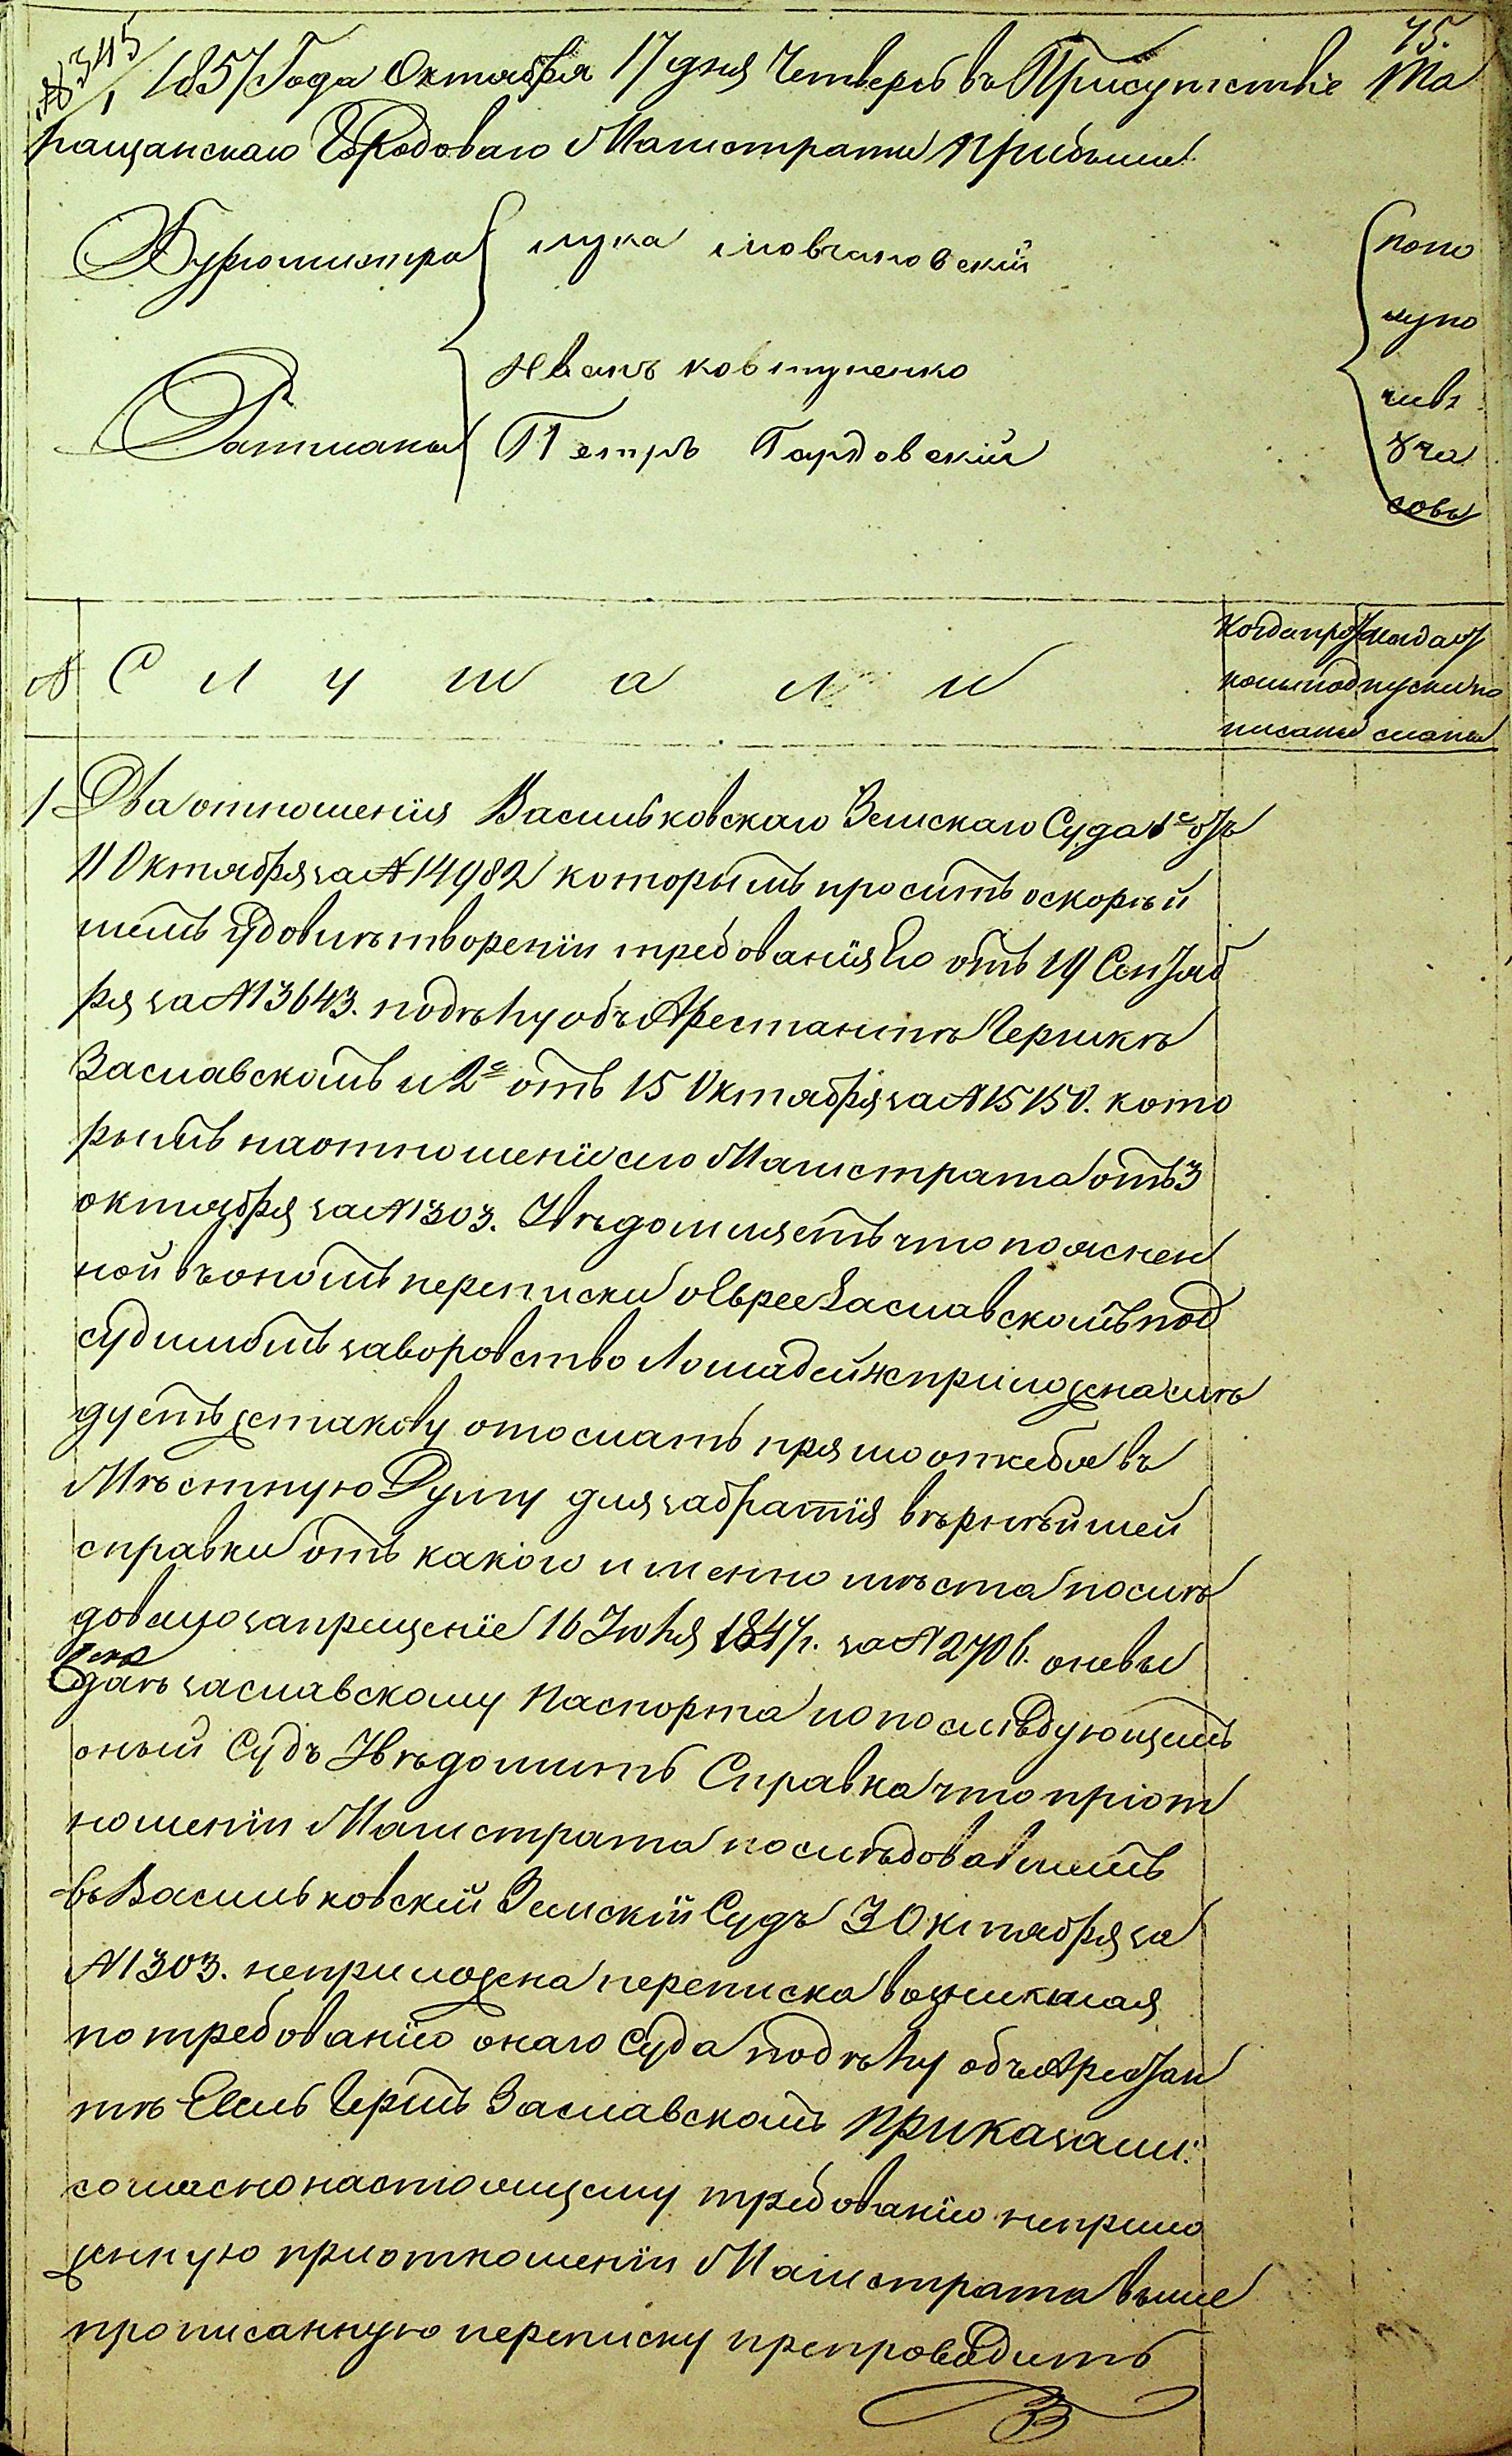 № 345/1
75.
1857 Года Октября 17 дня Четвергъ въ Присутствіе Та
ращанскаго Городоваго Магистрата прибыли
Бургомистра лука мовчановскій
Ратманы Иванъ ковтуненко
Петръ Гардовскій
попо
лупо
чивъ
8 ча
совъ
№ С л у ш а л и
Когда про
колы под
писаны
Когда от
пуски по
сланы
1 Два отношенія Васильковскаго Земскаго Суда 1е отъ
11 Октября за № 14982 которымъ проситъ о скорѣй
шемъ Удовлѣтвореніи требованія Его отъ 19 Сентяб
ря за № 13643. по дѣлу объ Арестантѣ Гершкѣ
Заславскомъ и 2е отъ 15 Октября за № 15150. кото
рымъ на отношеніе сего Магистрата отъ 3
октября за № 1303. Увѣдомляетъ что пояснен
ной въ ономъ переписки о Евреѣ Заславскомъ под
судимомъ за воровство Лошадей не приложена слѣ
дуетъ же такову отослать прямо от себя въ
Мѣстную Думу для забратія вѣрнѣйшей
справки отъ какого именно мѣста послѣ
довало запрещеніе 16 Іюля 1847 г. за № 2706. о не вы
дачѣ Заславскому Паспорта и о послѣдующемъ
оный Судъ Увѣдомить Справка что при от
ношеніи Магистрата послѣдовавшемъ
въ Васильковскій Земскій Судъ 3 Октября за
№ 1303. не приложена переписка возникшая
по требованію онаго Суда по дѣлу объ Арестан
тѣ Еѣль Гершъ Заславскомъ приказали:
согласно настоящему требованію неприло
женную при отношеніи Магистрата выше
прописанную переписку препроводить